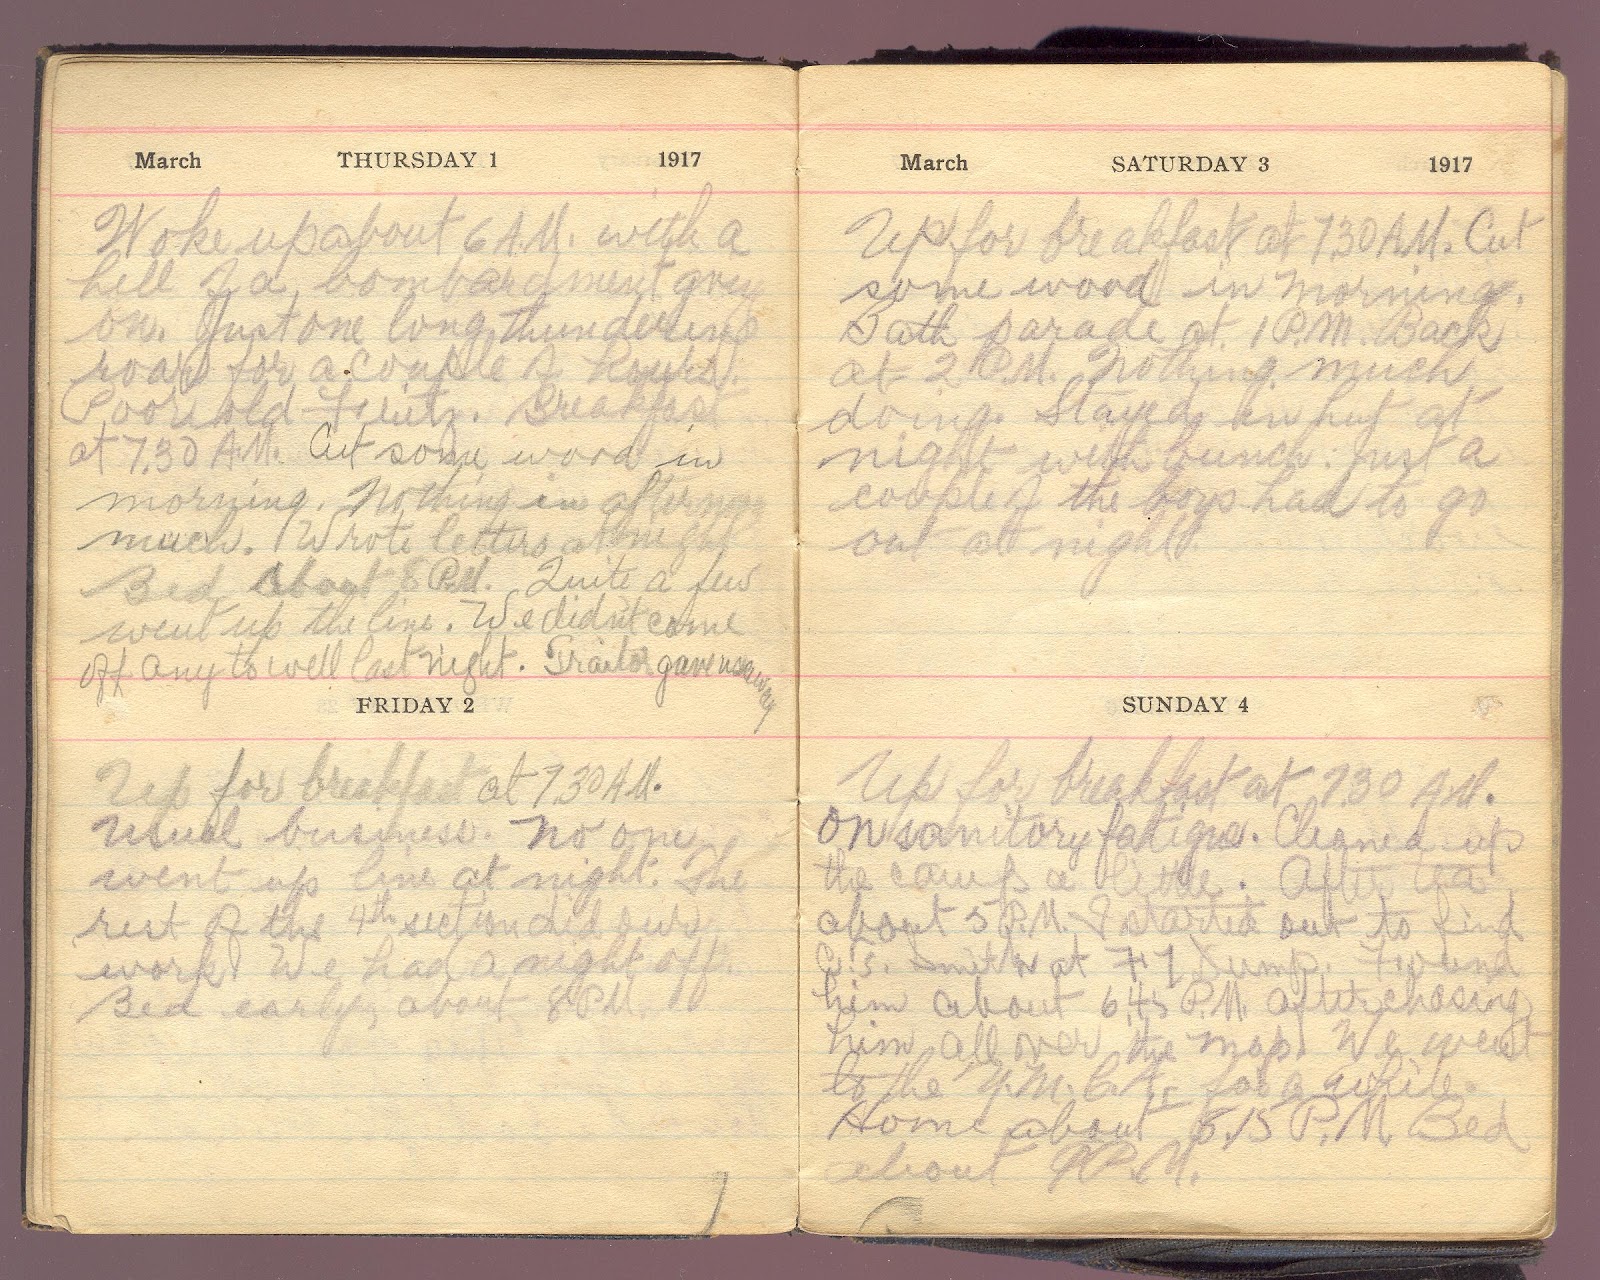 March THURSDAY 1 1917
Woke up about 6 A.M. with a
hell of a bombardment going
on. Just one long thundering
roar for a couple of hours.
Poor old Fritz. Breakfast
at 7.30 A.M. Cut some wood in
morning. Nothing in afternoon
much. Wrote letters at night
Bed about 8 P.M. Quite a few
went up the line. We didn't come
off any to well last night. Traitor gave us away
FRIDAY 2
Up for breakfast at 7.30 A.M.
Usual business. No one
went up line at night. The
rest of the 4th section did our
work. We had a night off.
Bed early, about 8 P.M.
March SATURDAY 3 1917
Up for breakfast at 7.30 A.M. Cut
some wood in morning.
Bath parade at 1 P.M. Back
at 2 P.M. Nothing much
doing. Stayed in hut at
night with bunch. Just a
couple of the boys had to go
out at night.
SUNDAY 4
Up for breakfast at 7.30 A.M.
On sanitory fatigue. Cleaned up
the camp a little. After tea
about 5 P.M. I started out to find
C.S. Smith at Dump. Found
him about 6.45 P.M. after chasing
him all over the map. We went
to the Y.M.C.A. for a while.
Home about 8.15 P.M. Bed
about 9 P.M.